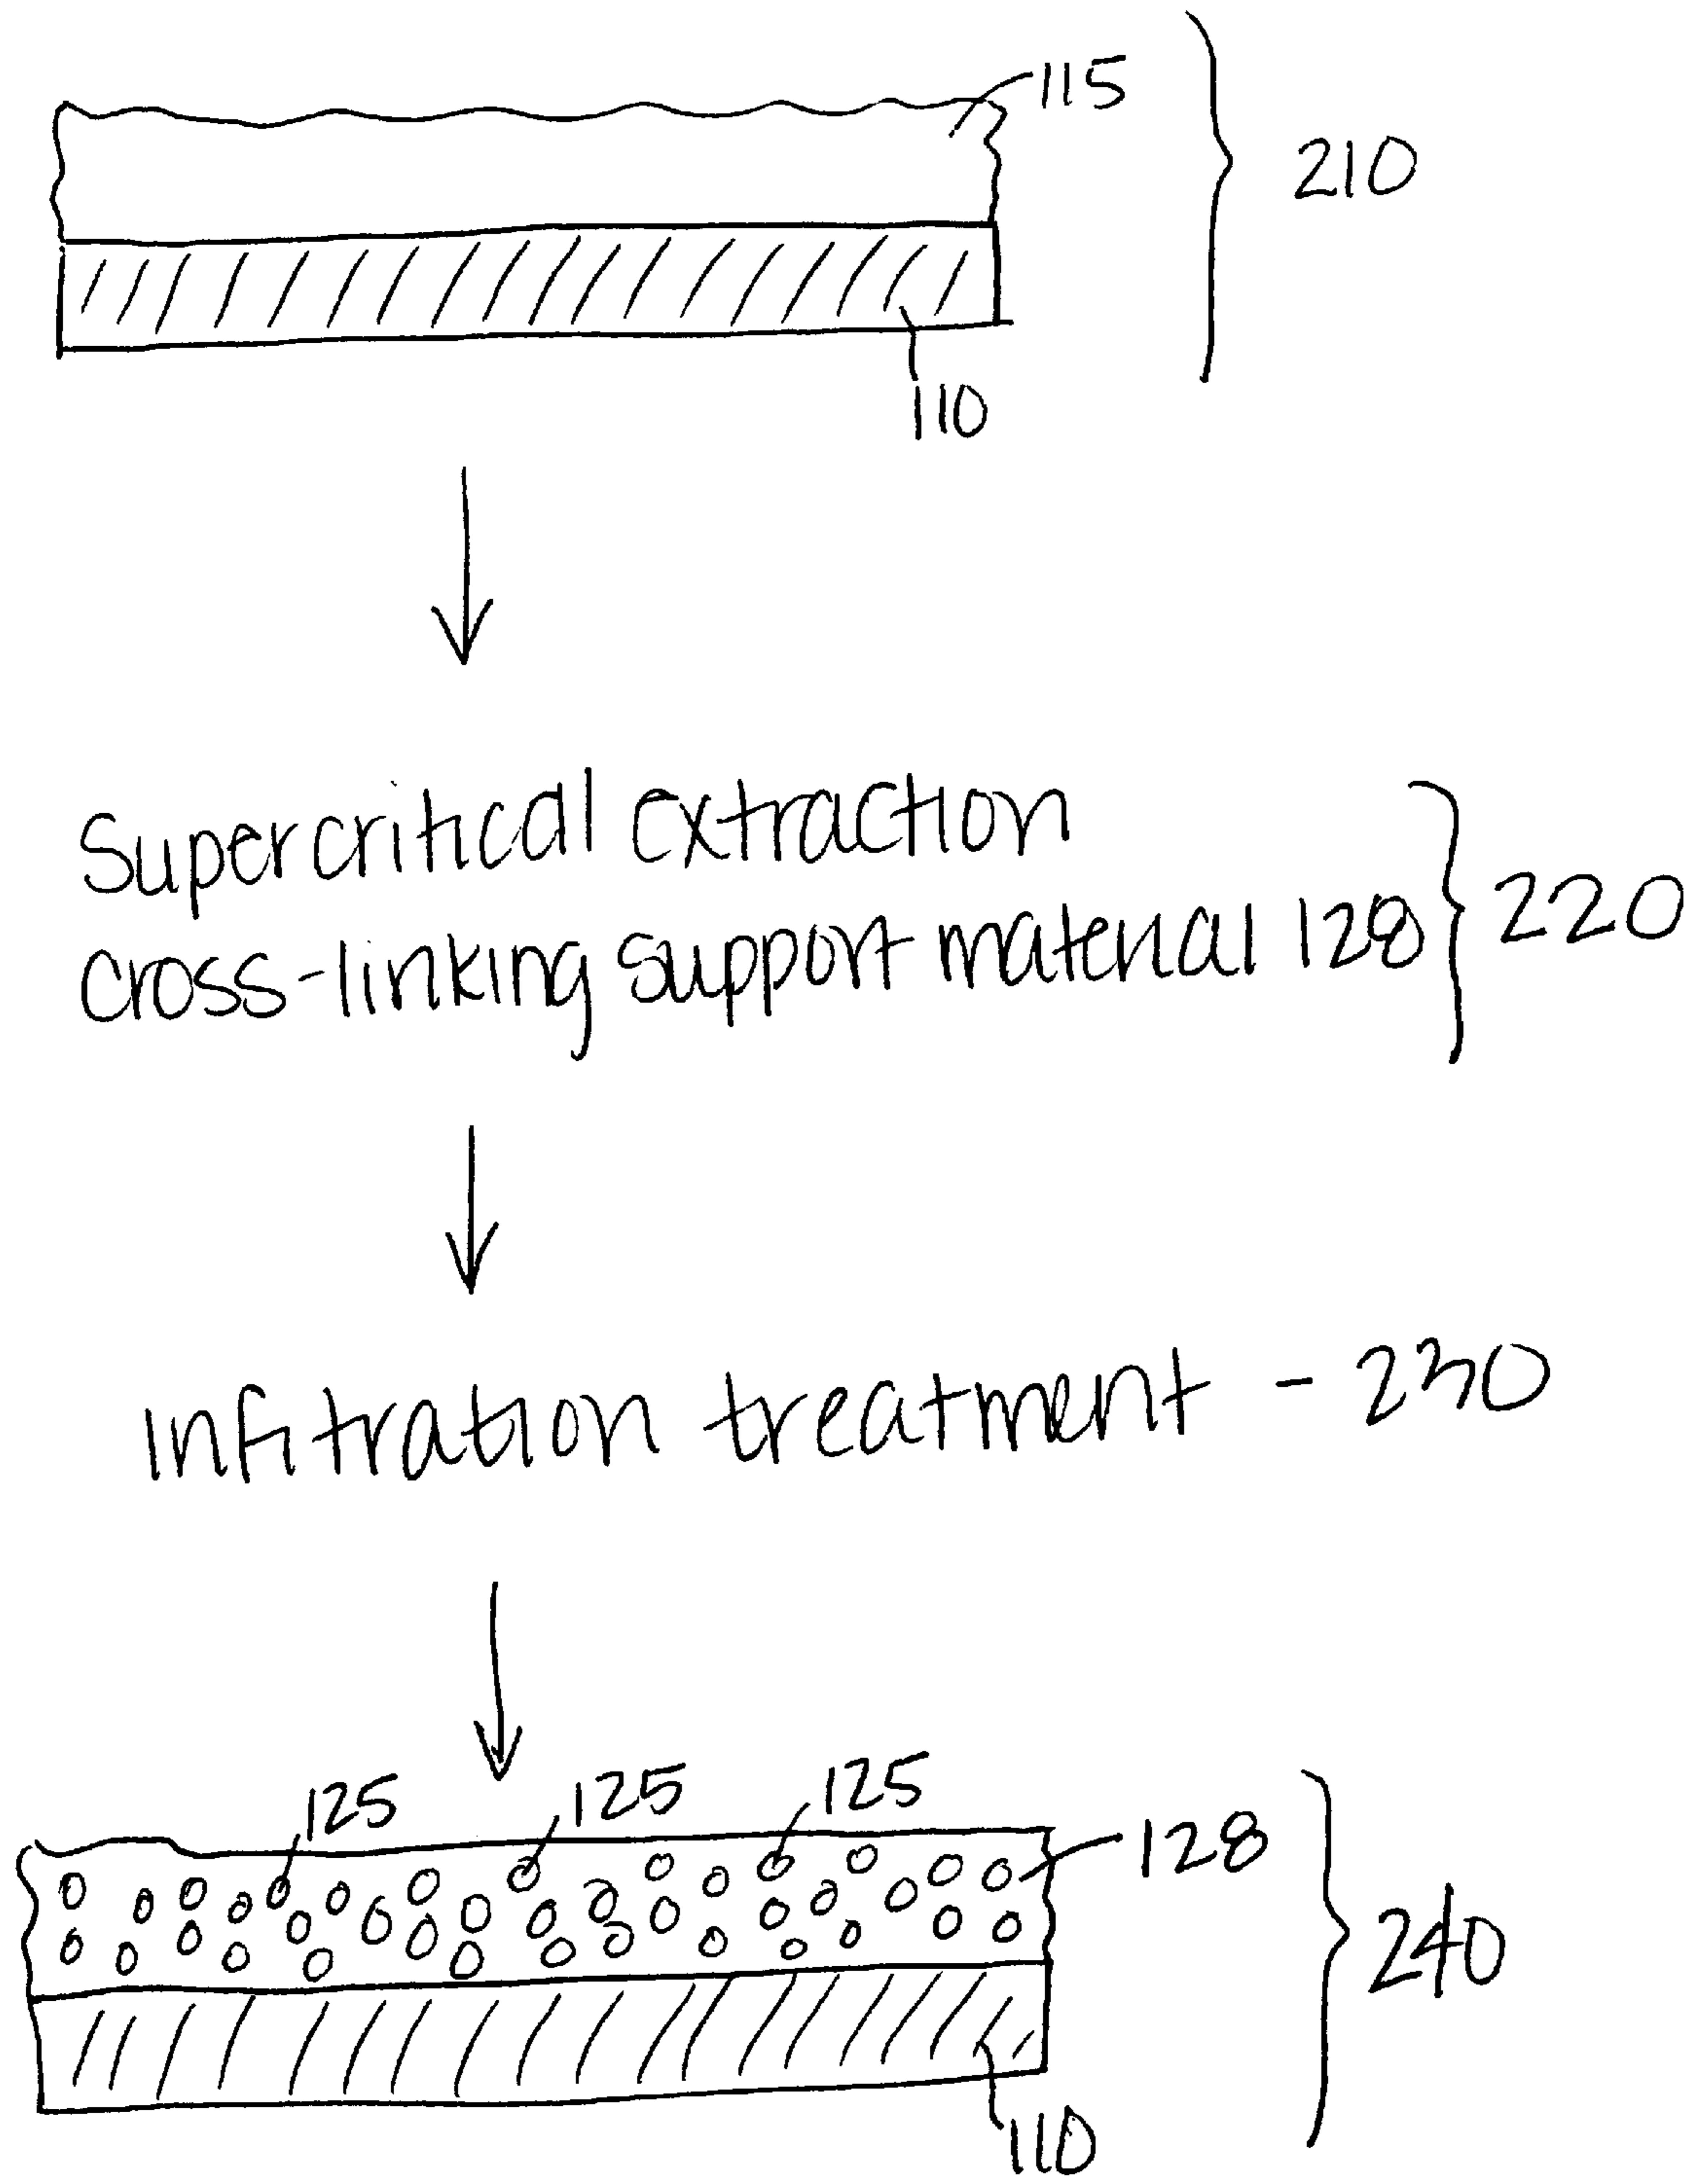 115
210
110
Supercritical extraction
cross-linking support material 128
220
Infitration treatment - 230
125 125 125
128
240
110